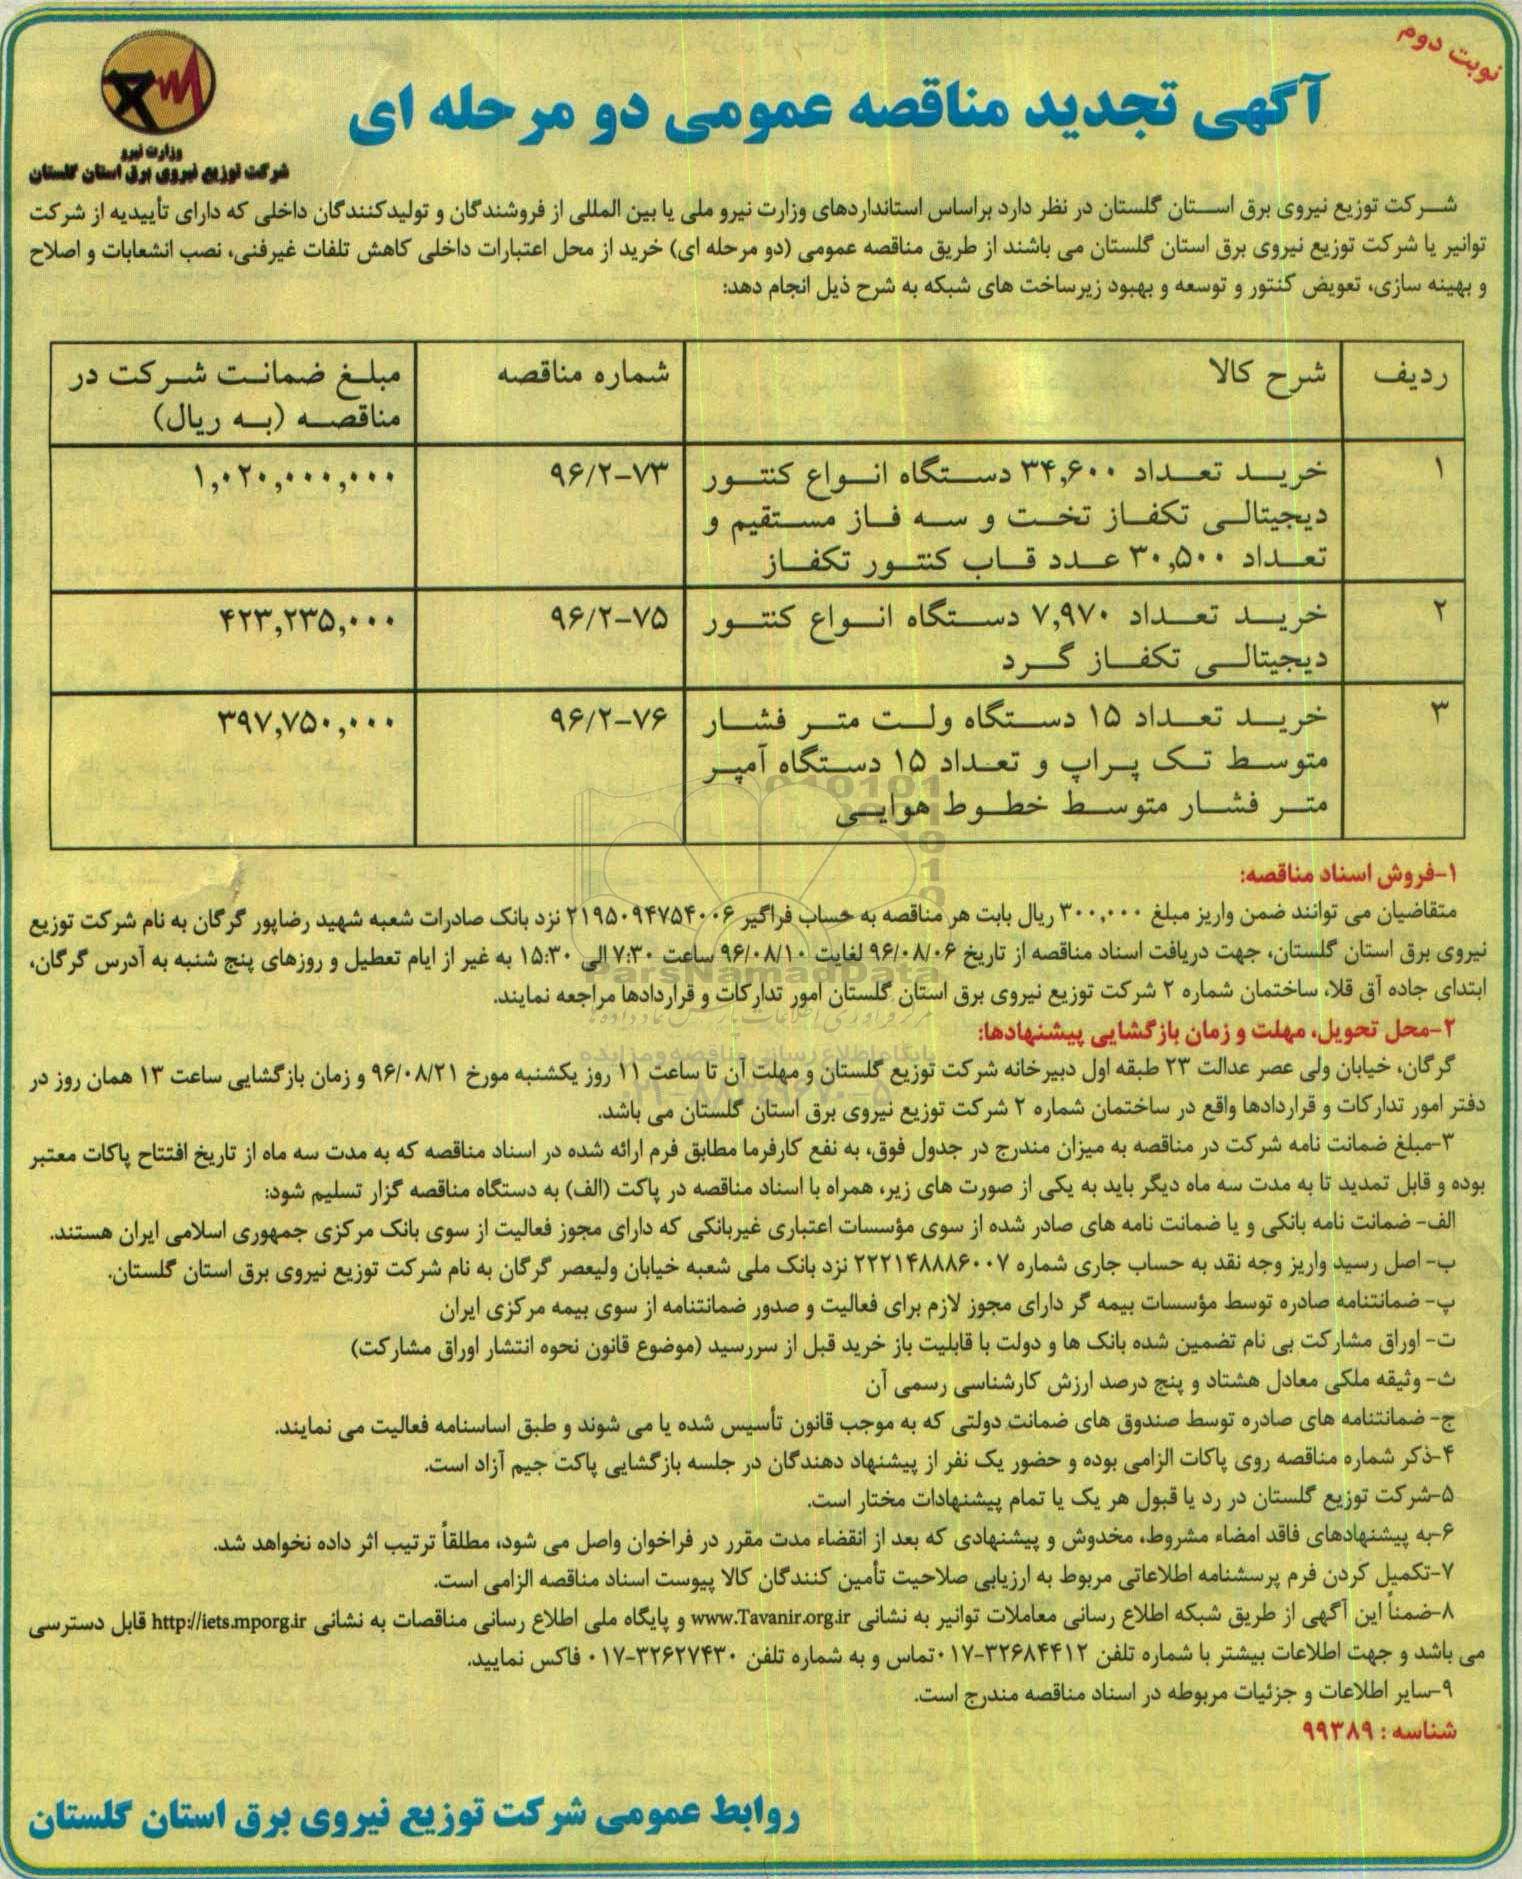 نوبت دوم
آگهی تجدید مناقصه عمومی دو مرحله ای
وزارت نیرو
شرکت توزیع نیروی برق استان گلستان
شرکت توزیع نیروی برق استان گلستان در نظر دارد براساس استانداردهای وزارت نیرو ملی یا بین المللی از فروشندگان و تولیدکنندگان داخلی که دارای تأییدیه از شرکت
توانیر یا شرکت توزیع نیروی برق استان گلستان می باشند از طریق مناقصه عمومی (دو مرحله ای) خرید از محل اعتبارات داخلی کاهش تلفات غیرفنی، نصب انشعابات و اصلاح
و بهینه سازی، تعویض کنتور و توسعه و بهبود زیرساخت های شبکه به شرح ذیل انجام دهد:
ردیف شرح کالا شماره مناقصه مبلغ ضمانت شرکت در
مناقصه (به ریال)
۱ خرید تعداد ۳۴,۶۰۰ دستگاه انواع کنتور ۹۶/۲-۷۳ ۱,۰۲۰,۰۰۰,۰۰۰
دیجیتالی تکفاز تخت و سه فاز مستقیم و
تعداد ۳۰,۵۰۰ عدد قاب کنتور تکفاز
۲ خرید تعداد ۷,۹۷۰ دستگاه انواع کنتور ۹۶/۲-۷۵ ۴۲۳,۲۳۵,۰۰۰
دیجیتالی تکفاز گرد
۳ خرید تعداد ۱۵ دستگاه ولت متر فشار ۹۶/۲-۷۶ ۳۹۷,۷۵۰,۰۰۰
متوسط تک پراپ و تعداد ۱۵ دستگاه آمپر
متر فشار متوسط خطوط هوایی
۱-فروش اسناد مناقصه:
متقاضیان می توانند ضمن واریز مبلغ ۳۰۰,۰۰۰ ریال بابت هر مناقصه به حساب فراگیر ۲۱۹۵۰۹۴۷۵۴۰۰۶ نزد بانک صادرات شعبه شهید رضاپور گرگان به نام شرکت توزیع
نیروی برق استان گلستان، جهت دریافت اسناد مناقصه از تاریخ ۹۶/۰۸/۰۶ لغایت ۹۶/۰۸/۱۰ ساعت ۷:۳۰ الی ۱۵:۳۰ به غیر از ایام تعطیل و روزهای پنج شنبه به آدرس گرگان،
ابتدای جاده آق قلا، ساختمان شماره ۲ شرکت توزیع نیروی برق استان گلستان امور تدارکات و قراردادها مراجعه نمایند.
۲-محل تحویل، مهلت و زمان بازگشایی پیشنهادها:
گرگان، خیابان ولی عصر عدالت ۲۳ طبقه اول دبیرخانه شرکت توزیع گلستان و مهلت آن تا ساعت ۱۱ روز یکشنبه مورخ ۹۶/۰۸/۲۱ و زمان بازگشایی ساعت ۱۳ همان روز در
دفتر امور تدارکات و قراردادها واقع در ساختمان شماره ۲ شرکت توزیع نیروی برق استان گلستان می باشد.
۳-مبلغ ضمانت نامه شرکت در مناقصه به میزان مندرج در جدول فوق، به نفع کارفرما مطابق فرم ارائه شده در اسناد مناقصه که به مدت سه ماه از تاریخ افتتاح پاکات معتبر
بوده و قابل تمدید تا به مدت سه ماه دیگر باید به یکی از صورت های زیر، همراه با اسناد مناقصه در پاکت (الف) به دستگاه مناقصه گزار تسلیم شود:
الف- ضمانت نامه بانکی و یا ضمانت نامه های صادر شده از سوی مؤسسات اعتباری غیربانکی که دارای مجوز فعالیت از سوی بانک مرکزی جمهوری اسلامی ایران هستند.
ب- اصل رسید واریز وجه نقد به حساب جاری شماره ۲۲۲۱۴۸۸۸۶۰۰۷ نزد بانک ملی شعبه خیابان ولیعصر گرگان به نام شرکت توزیع نیروی برق استان گلستان.
پ- ضمانتنامه صادره توسط مؤسسات بیمه گر دارای مجوز لازم برای فعالیت و صدور ضمانتنامه از سوی بیمه مرکزی ایران
ت- اوراق مشارکت بی نام تضمین شده بانک ها و دولت با قابلیت باز خرید قبل از سررسید (موضوع قانون نحوه انتشار اوراق مشارکت)
ث- وثیقه ملکی معادل هشتاد و پنج درصد ارزش کارشناسی رسمی آن
ج- ضمانتنامه های صادره توسط صندوق های ضمانت دولتی که به موجب قانون تأسیس شده یا می شوند و طبق اساسنامه فعالیت می نمایند.
۴-ذکر شماره مناقصه روی پاکات الزامی بوده و حضور یک نفر از پیشنهاد دهندگان در جلسه بازگشایی پاکت جیم آزاد است.
۵-شرکت توزیع گلستان در رد یا قبول هر یک یا تمام پیشنهادات مختار است.
۶-به پیشنهادهای فاقد امضاء مشروط، مخدوش و پیشنهادی که بعد از انقضاء مدت مقرر در فراخوان واصل می شود، مطلقاً ترتیب اثر داده نخواهد شد.
۷-تکمیل کردن فرم پرسشنامه اطلاعاتی مربوط به ارزیابی صلاحیت تأمین کنندگان کالا پیوست اسناد مناقصه الزامی است.
۸-ضمناً این آگهی از طریق شبکه اطلاع رسانی معاملات توانیر به نشانی www.Tavanir.org.ir و پایگاه ملی اطلاع رسانی مناقصات به نشانی http://iets.mporg.ir قابل دسترسی
می باشد و جهت اطلاعات بیشتر با شماره تلفن ۳۲۶۸۴۴۱۲-۰۱۷ تماس و به شماره تلفن ۳۲۶۲۷۴۳۰-۰۱۷ فاکس نمایید.
۹-سایر اطلاعات و جزئیات مربوطه در اسناد مناقصه مندرج است.
شناسه : ۹۹۳۸۹
روابط عمومی شرکت توزیع نیروی برق استان گلستان
ParsNamadData
پایگاه اطلاع رسانی مناقصه و مزایده